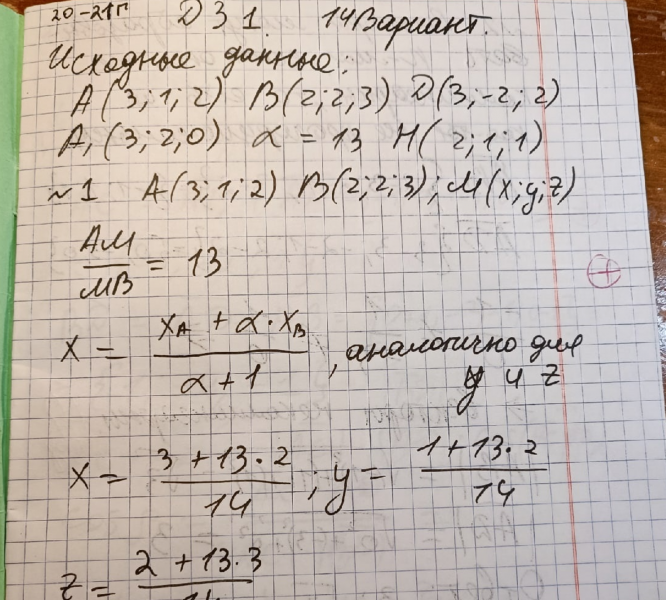 20-21г ДЗ 1. 14 Вариант.
Исходные данные:
A(3;1;2) B(2;2;3) D(3;-2;2)
A₁(3;2;0) α = 13 H(2;1;1)
~1 A(3;1;2) B(2;2;3); M(x;y;z)
AM/MB = 13
x = (x_A + α·x_B)/(α+1), аналогично для
y и z
x = (3 + 13·2)/14; y = (1+13·2)/14
z = (2 + 13·3)/14